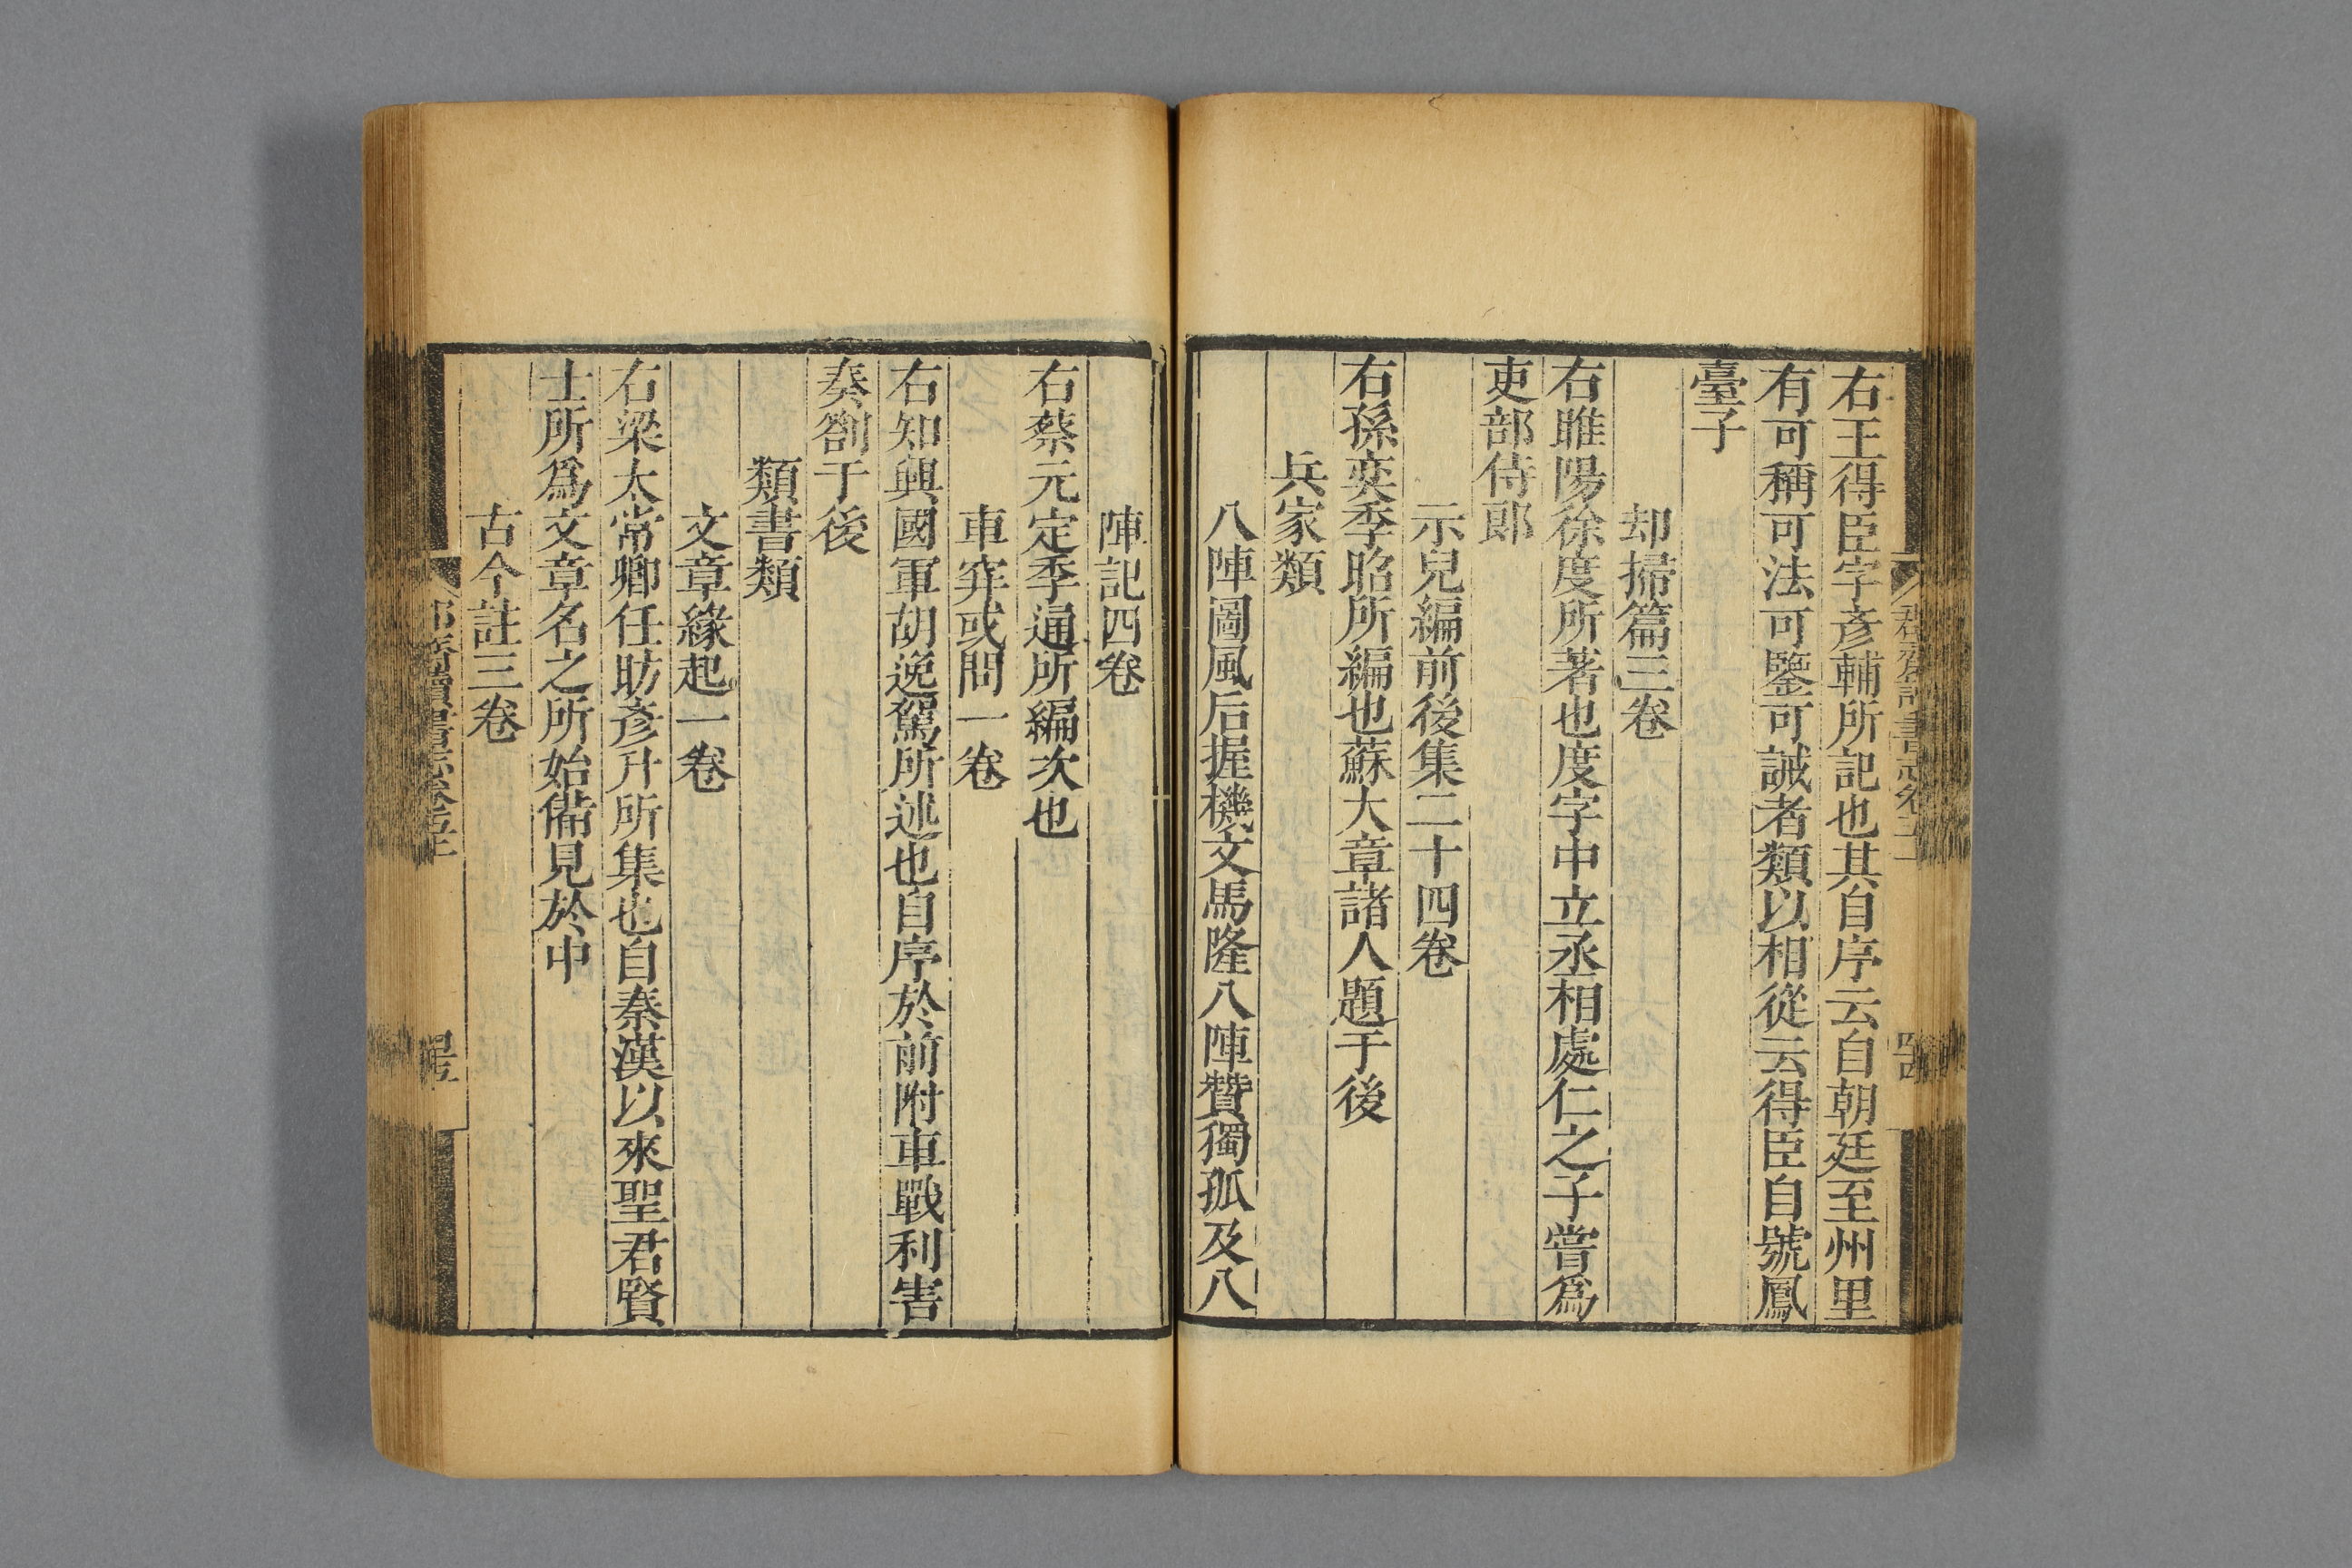 右王得臣字彥輔所記也其自序云自朝廷至州里
有可稱可法可鑒可誡者類以相從云得臣自號鳳
臺子
却掃篇三卷
右睢陽徐度所著也度字中立丞相處仁之子嘗爲
吏部侍郎
示兒編前後集二十四卷
右孫奕季昭所編也蘇大章諸人題于後
兵家類
八陣圖風后握機文馬隆八陣贊獨孤及八
陣記四卷
右蔡元定季通所編次也
車穽或問一卷
右知興國軍胡逸駕所述也自序於前附車戰利害
奏劄于後
類書類
文章緣起一卷
右梁太常卿任昉彥升所集也自秦漢以來聖君賢
士所爲文章名之所始備見於中
古今註三卷